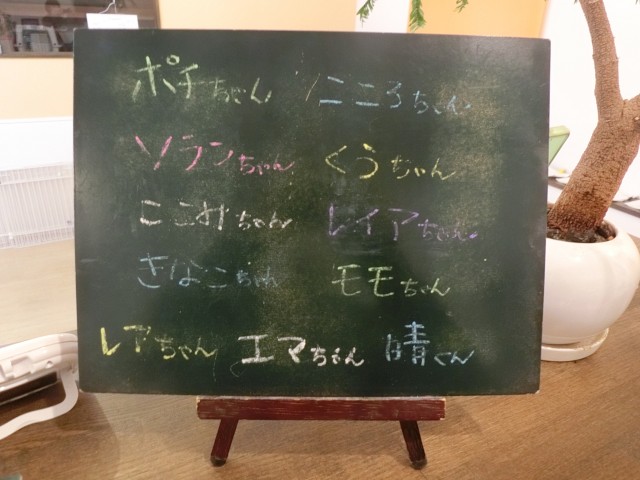 ポチちゃん こころちゃん
ソランちゃん くうちゃん
ここみちゃん レイアちゃん
きなこちゃん モモちゃん
レアちゃん エマちゃん 晴くん